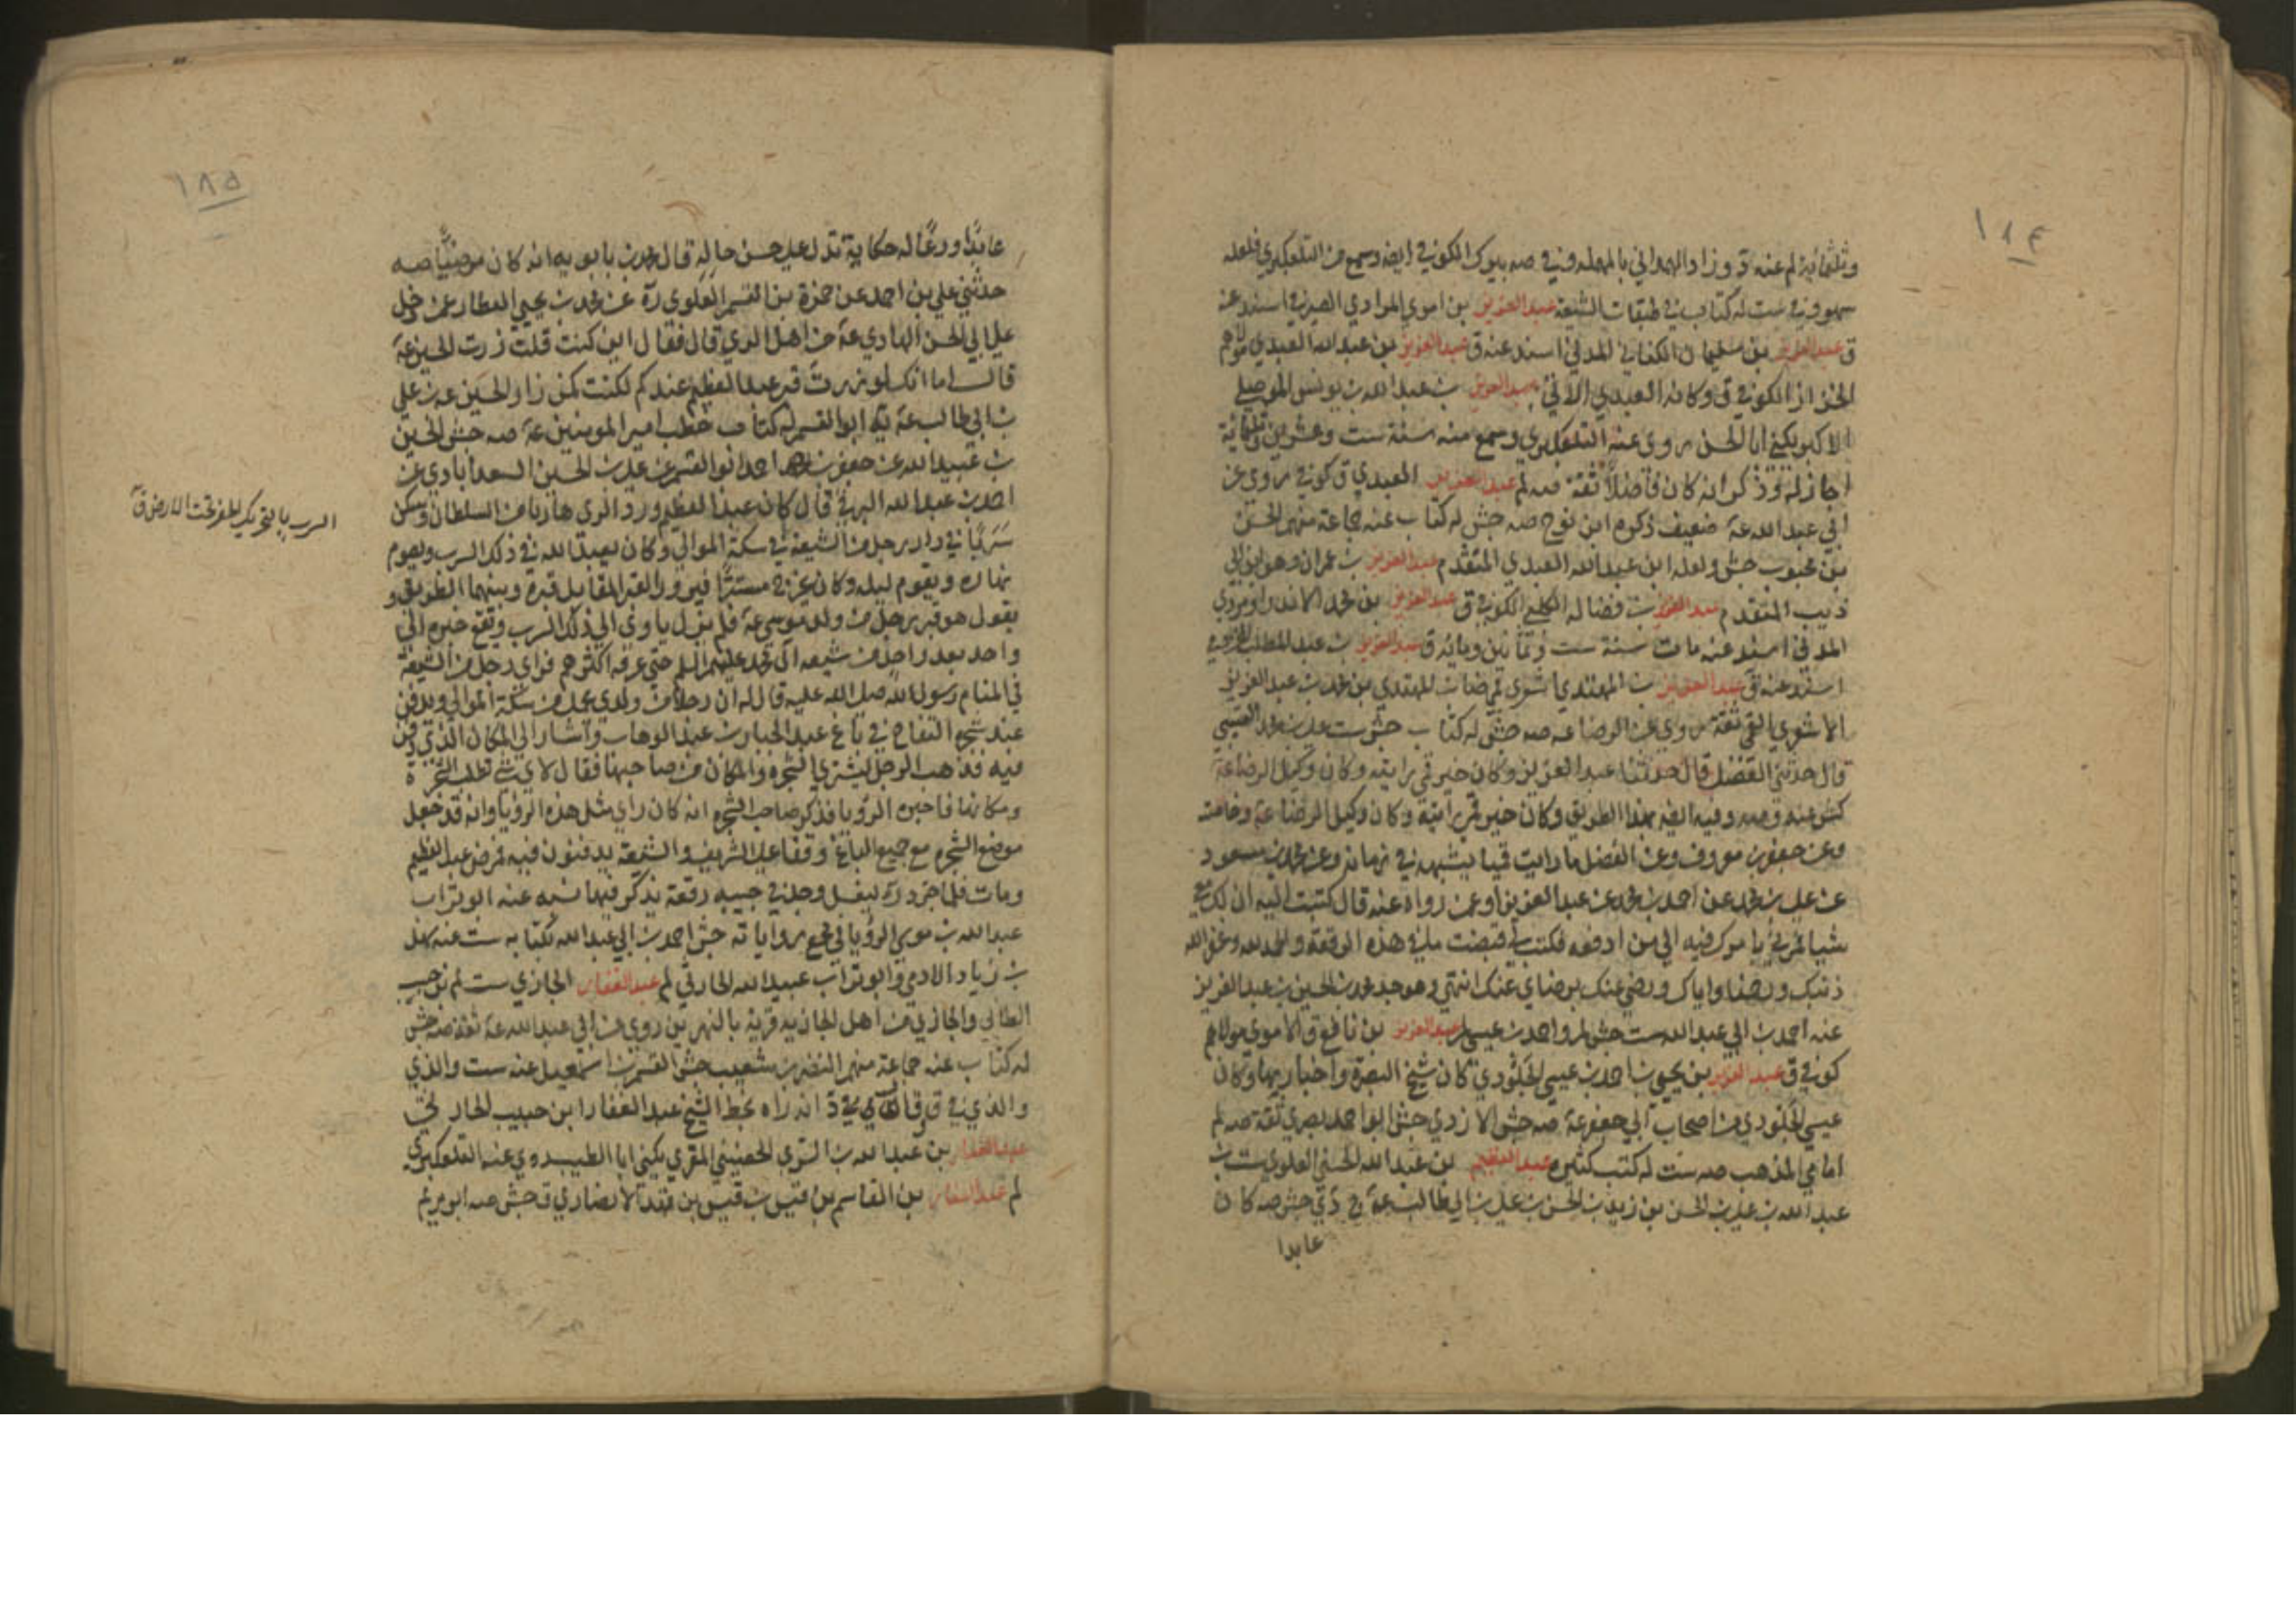 ١٨٤
وثلثمائة لم عنه ة وزاد الهمداني بالمهملة وفي صه بيوك الكوفي ايضه وسمع من التلعكبري فلعله
سهو وفي ست له كتاب في طبقات الشيعة عبد العزيز بن اموي المرادي الصيرفي اسند عنه
ق عبد العزيز بن سليمان الكناني المدني اسند عنه ق عبد العزيز بن عبد الله العبدي مولاهم
الخزاز الكوفي ق وكانه العبدي الاتي عبد العزيز بن عبد الله بن يونس الموصلي
الاكبر يكنى ابا الحسن روى عنه التلعكبري وسمع منه سنة ست وعشرين وثلثمائة
اجاز له وذكر انه كان فاضلا ثقة صه لم عبد العزيز العبدي ق كوفي روى عن
ابي عبد الله عة ضعيف ذكره ابن نوح صه جش له كتاب عنه جماعة منهم الحسن
بن محبوب جش ولعله ابن عبد الله العبدي المتقدم عبد العزيز بن عمران وهو ابن ابي
ذيب المتقدم عبد العزيز بن فضالة الكلبي الكوفي ق عبد العزيز بن محمد الاندراوردي
المدني اسند عنه مات سنة ست وثمانين ومائة ق عبد العزيز بن عبد المطلب المخزومي
اسند عنه ق عبد العزيز بن المهتدي اشعري قمي ضا بن المهتدي بن محمد بن عبد العزيز
الاشعري القمي ثقة روى عن الرضا عة صه جش له كتاب جش ست علي بن محمد القتيبي
قال حدثني الفضل قال حدثنا عبد العزيز وكان خير قمي رايته وكان وكيل الرضا عة
كش عنه وصه وفيه ايضه بهذا الطريق وكان خير قمي رايته وكان وكيل الرضا عة وخاصته
وعن جعفر بن معروف وعن الفضل ما رايت قميا يشبهه في زمانه وعن محمد بن مسعود
عن علي بن محمد عن احمد بن محمد عن عبد العزيز او عمن رواه عنه قال كتبت اليه ان لك معي
شيا فمرني بامرك فيه الى من ادفعه فكتب الي قبضت ما في هذه الرقعة والحمد لله وغفر الله
ذنبك ورحمنا واياك ورضي عنك برضاي عنك انتهى وهو جد محمد بن الحسين بن عبد العزيز
عنه احمد بن ابي عبد الله ست جش لم واحمد بن عيسى لم عبد العزيز بن نافع ق الاموي مولاهم
كوفي ق عبد العزيز بن يحيى بن احمد بن عيسى الجلودي كان شيخ البصرة واخباريها وكان
عيسى الجلودي من اصحاب ابي جعفر عة صه جش الازدي جش ابو احمد بصري ثقة صه لم
امامي المذهب صه ست له كتب كثيرة عبد العظيم بن عبد الله الحسني العلوي ست بن
عبد الله بن علي بن الحسن بن زيد بن الحسن بن علي بن ابي طالب عة ج دي جش صه كان
عابدا
١٨٥
عابدا ورعا له حكاية تدل على حسن حاله قال محمد بن بابويه انه كان مرضيا صه
حدثني علي بن احمد عن حمزة بن القسم العلوي رة عن محمد بن يحيى العطار عمن دخل
على ابي الحسن الهادي عة من اهل الري قال فقال اين كنت قلت زرت الحسين عة
قال اما انك لو زرت قبر عبد العظيم عندكم لكنت كمن زار الحسين عة بن علي
بن ابي طالب عة يه ابو القسم له كتاب خطب امير المومنين عة صه جش الحسين
بن عبيد الله عن جعفر بن محمد ابو القسم عن علي بن الحسن السعدآبادي عن
احمد بن عبد الله البرقي قال كان عبد العظيم ورد الري هاربا من السلطان وسكن
سَرَبًا في دار رجل من الشيعة في سكة الموالي وكان يعبد الله في ذلك السرب ويصوم
نهاره ويقوم ليله وكان يخرج مستترا فيزور القبر المقابل قبره وبينهما الطريق و
يقول هو قبر رجل من ولد موسى عة فلم يزل ياوي الى ذلك السرب ويقع خبره الى
واحد بعد واحد من شيعه آل محمد عليهم السلم حتى عرفه اكثرهم فراى رجل من الشيعة
في المنام رسول الله صلى الله عليه قال له ان رجلا من ولدي يحمل من سكة الموالي ويدفن
عند شجرة التفاح في باغ عبد الجبار بن عبد الوهاب واشار الى المكان الذي دفن
فيه فذهب الرجل ليشتري الشجرة والمكان من صاحبها فقال لاي شئ تطلب الشجرة
ومكانها فاخبره الرؤيا فذكر صاحب الشجرة انه كان راى مثل هذه الرؤيا وانه قد جعل
موضع الشجرة مع جميع الباغ وقفا على الشريف والشيعة يدفنون فيه فمرض عبد العظيم
ومات فلما جرد رة ليغسل وجد في جيبه رقعة يذكر فيها نسبه عنه ابو تراب
عبد الله بن موسى الروياني بجميع رواياته جش احمد بن ابي عبد الله بكتابه ست عنه سهل
بن زياد الادمي وابو تراب عبيد الله الحارثي لم عبد الغفار الجازي ست لم بن حبيب
الطائي والجازي من اهل الجازية قرية بالنهرين روى عن ابي عبد الله عة ثقة صه جش
له كتاب عنه جماعة منهم النضر بن شعيب جش القسم بن اسمعيل عنه ست والذي
والذي في ق وقال د انه راه بخط الشيخ عبد الغفار ابن حبيب الحارثي
عبد الغفار بن عبد الله بن السري الحصيني المقري يكنى ابا الطيب روى عنه التلعكبري
لم عبد الغفار بن القاسم بن قيس بن قيس بن فهد الانصاري ق جش صه ابو مريم
السرب بالتحريك الحفر تحت الارض ق